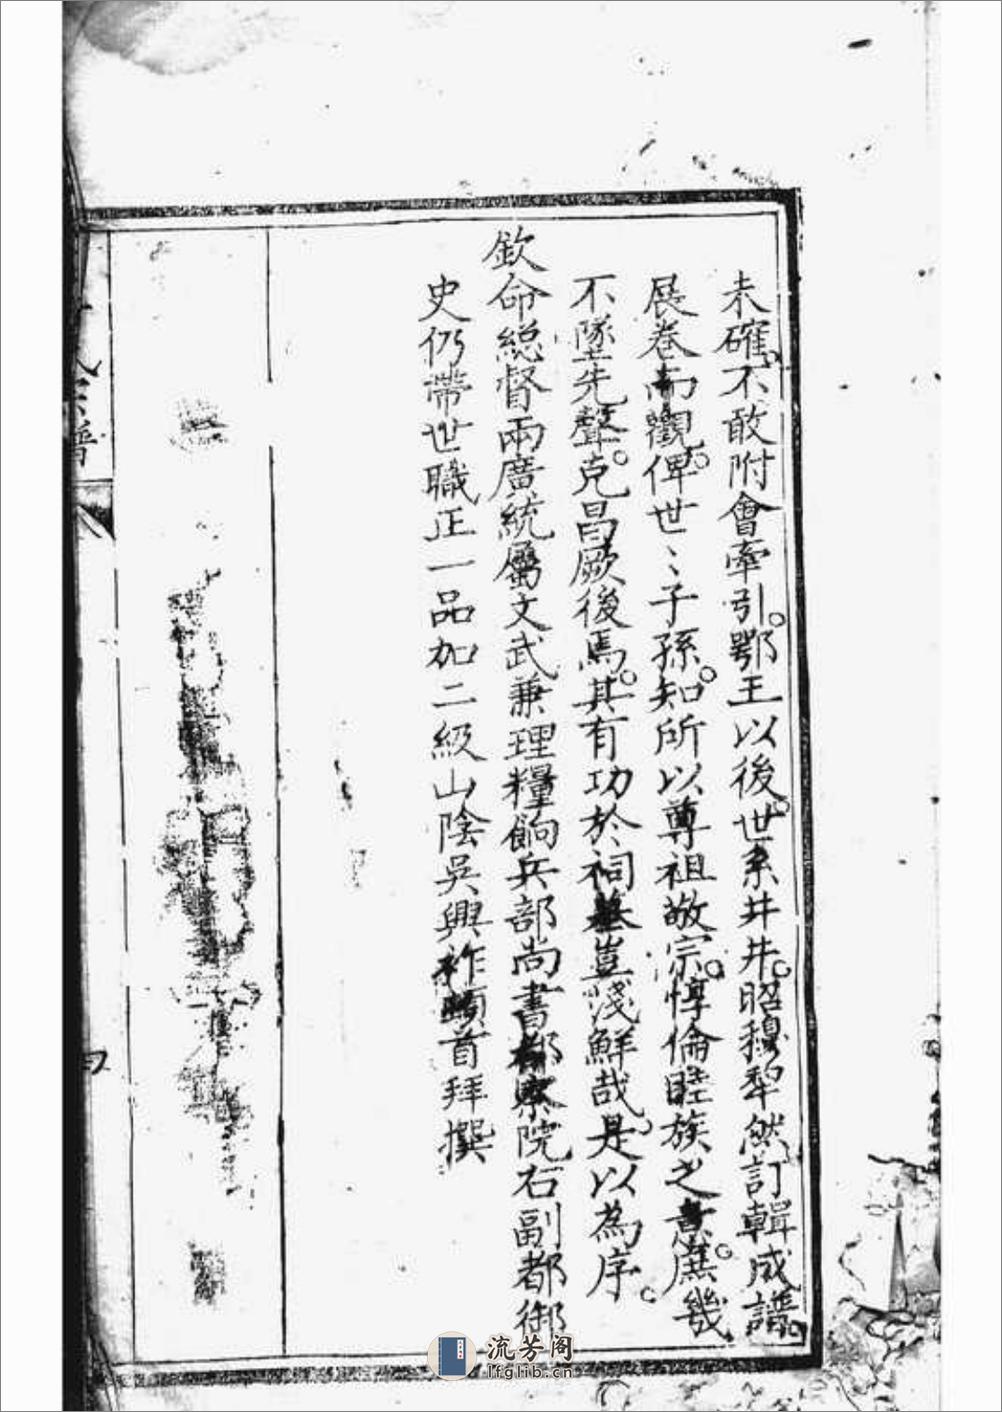 未確不敢附會牽引鄂王以後世系井井昭穆犂然訂輯成譜
展卷而觀俾世〻子孫知所以尊祖敬宗惇倫睦族之意庶幾
不墜先聲克昌厥後焉其有功於祠墓豈淺鮮哉是以為序
欽命総督兩廣統屬文武兼理糧餉兵部尚書都察院右副都御
史仍帶世職正一品加二級山陰吳興祚頓首拜撰
宗譜
四
流芳阁
lfglib.cn